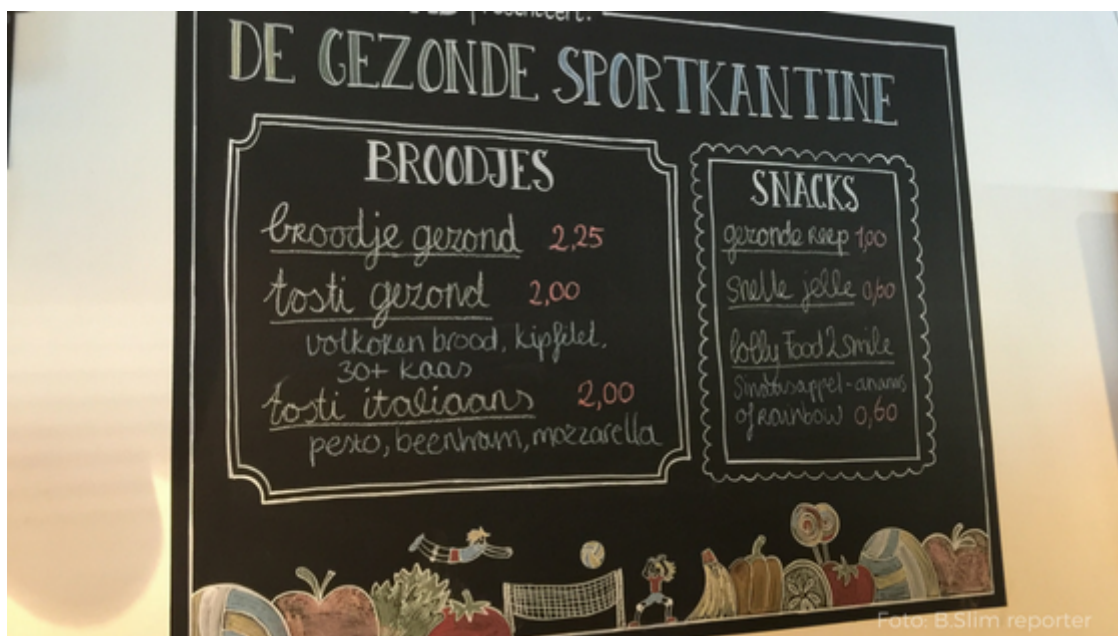 presenteert:
DE GEZONDE SPORTKANTINE
BROODJES
broodje gezond 2,25
tosti gezond 2,00
volkoren brood, kipfilet,
30+ kaas
tosti italiaans 2,00
pesto, beenham, mozzarella
SNACKS
gezonde reep 1,00
snelle jelle 0,60
lolly Food2Smile
Sinaasappel-ananas
of rainbow 0,60
Foto: B.Slim reporter